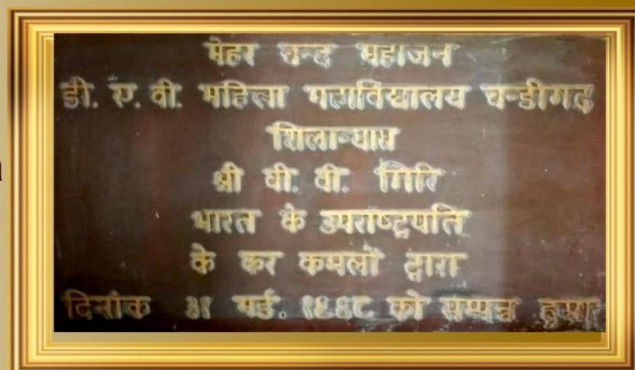 मेहर चन्द महाजन
डी. ए. वी. महिला महाविद्यालय चन्डीगढ़
शिलान्यास
श्री वी. वी. गिरि
भारत के उपराष्ट्रपति
के कर कमलों द्वारा
दिनांक ३१ मई. १९६८ को सम्पन्न हुआ